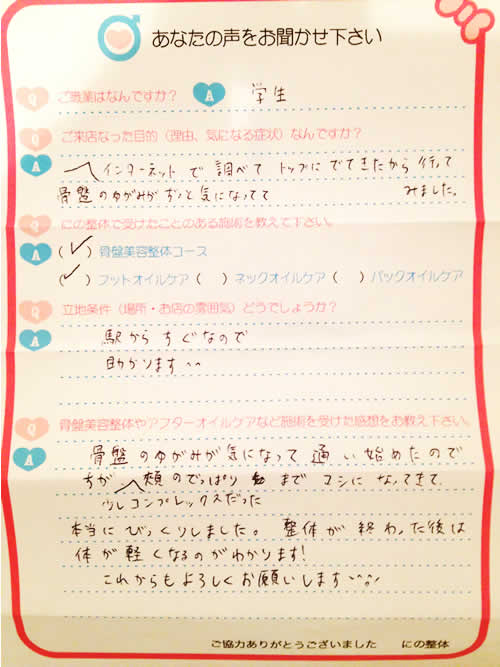 あなたの声をお聞かせ下さい
Q ご職業はなんですか? A 学生
Q ご来店なった目的(理由、気になる症状)なんですか?
A インターネットで調べてトップにでてきたから行って
みました。
骨盤のゆがみがずっと気になってて
Q にの整体で受けたことのある施術を教えて下さい。
A (✓) 骨盤美容整体コース
(✓) フットオイルケア ( ) ネックオイルケア ( ) バックオイルケア
Q 立地条件(場所・お店の雰囲気)どうでしょうか?
A 駅からすぐなので
助かります
Q 骨盤美容整体やアフターオイルケアなど施術を受けた感想をお教え下さい。
A 骨盤のゆがみが気になって通い始めたので
すが 頬のでっぱり まで マシに なってきて、
コンプレックスだった
本当にびっくりしました。整体が終わった後は
体が軽くなるのがわかります!
これからもよろしくお願いします
ご協力ありがとうございました にの整体